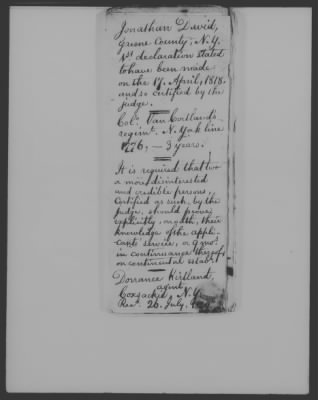 Jonathan David,
Greene County, N.Y.
1st declaration stated
to have been made
on the 17. April, 1818.
and so certified by the
judge.
Col. Van Cortland's
regimt. N. York line
1776, — 3 years.
It is required that two
or more disinterested
and credible persons,
certified as such, by the
judge, should prove
explicitly, on oath, their
knowledge of the appli-
cants service, or 9 mos.
in continuance thereof,
on continental estabt.
Dorrance Kirtland,
agent,
Coxsackie, N.Y.
Recd. 26. July,